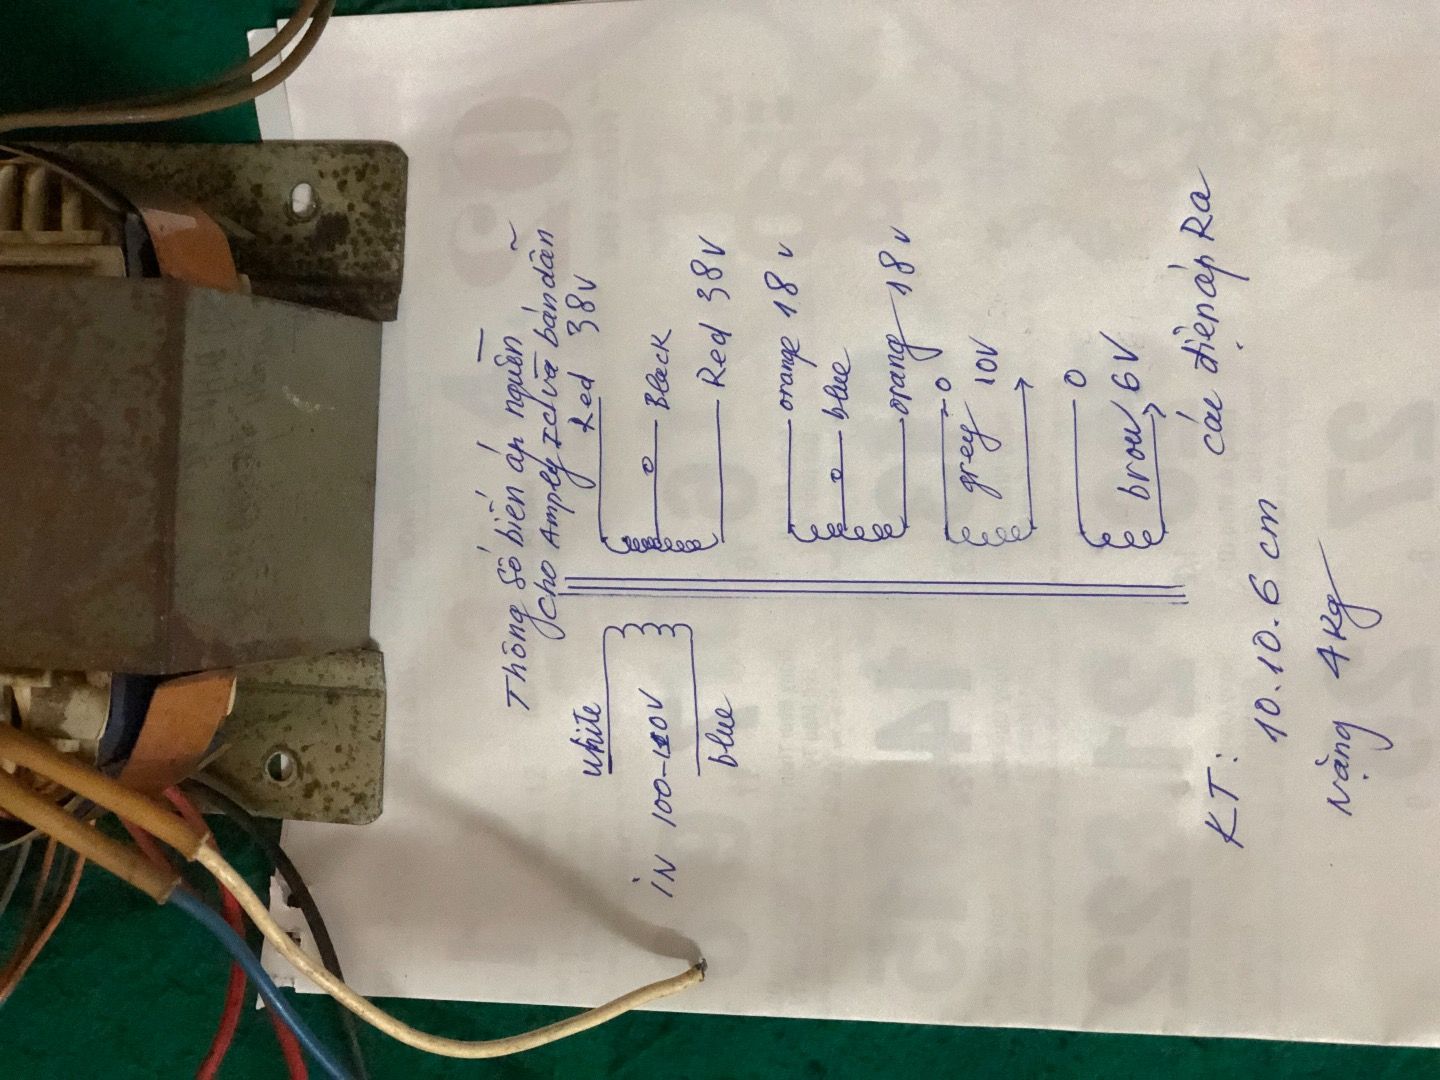 Thông số biến áp nguồn
cho Amply IC và bán dẫn
white
iN 100-110V
blue
Red 38V
o Black
Red 38V
orange 18v
o blue
orang 18v
o
grey 10V
o
brow 6V
các điện áp Ra
KT: 10.10.6 cm
Nặng 4kg